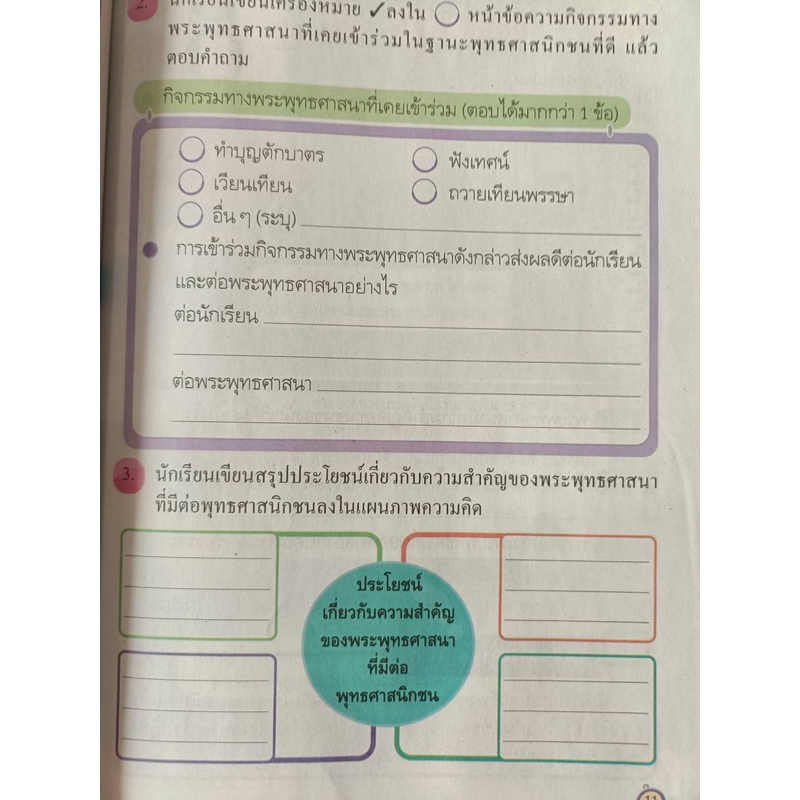 2. นักเรียนเขียนเครื่องหมาย ✓ ลงใน ◯ หน้าข้อความกิจกรรมทาง
พระพุทธศาสนาที่เคยเข้าร่วมในฐานะพุทธศาสนิกชนที่ดี แล้ว
ตอบคำถาม
กิจกรรมทางพระพุทธศาสนาที่เคยเข้าร่วม (ตอบได้มากกว่า 1 ข้อ)
◯ ทำบุญตักบาตร ◯ ฟังเทศน์
◯ เวียนเทียน ◯ ถวายเทียนพรรษา
◯ อื่น ๆ (ระบุ)
● การเข้าร่วมกิจกรรมทางพระพุทธศาสนาดังกล่าวส่งผลดีต่อนักเรียน
และต่อพระพุทธศาสนาอย่างไร
ต่อนักเรียน
ต่อพระพุทธศาสนา
3. นักเรียนเขียนสรุปประโยชน์เกี่ยวกับความสำคัญของพระพุทธศาสนา
ที่มีต่อพุทธศาสนิกชนลงในแผนภาพความคิด
ประโยชน์
เกี่ยวกับความสำคัญ
ของพระพุทธศาสนา
ที่มีต่อ
พุทธศาสนิกชน
11